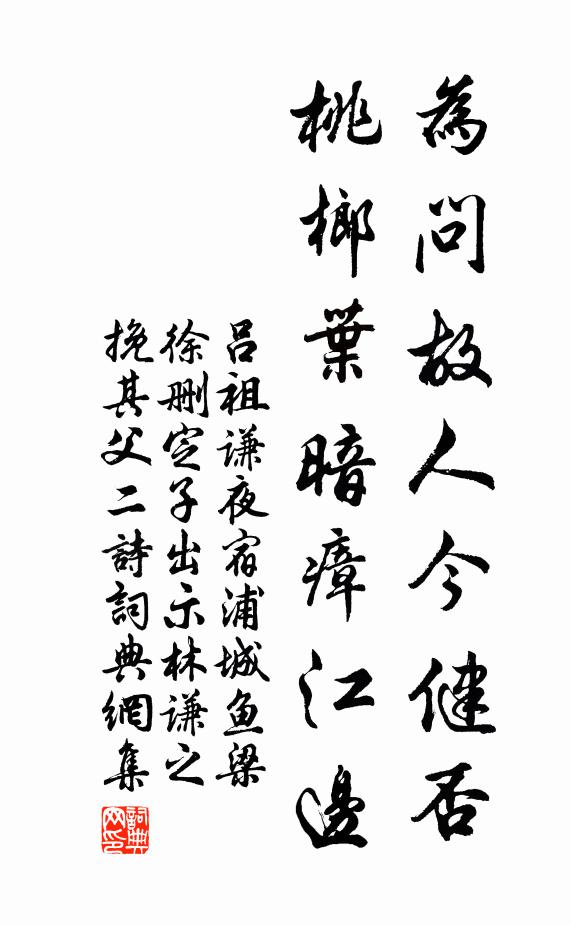 為問故人今健否
桃榔葉暗瘴江邊
吕祖谦夜宿浦城鱼梁
徐删定子出示林谦之
挽其父二詩詞典網集
詞典网印